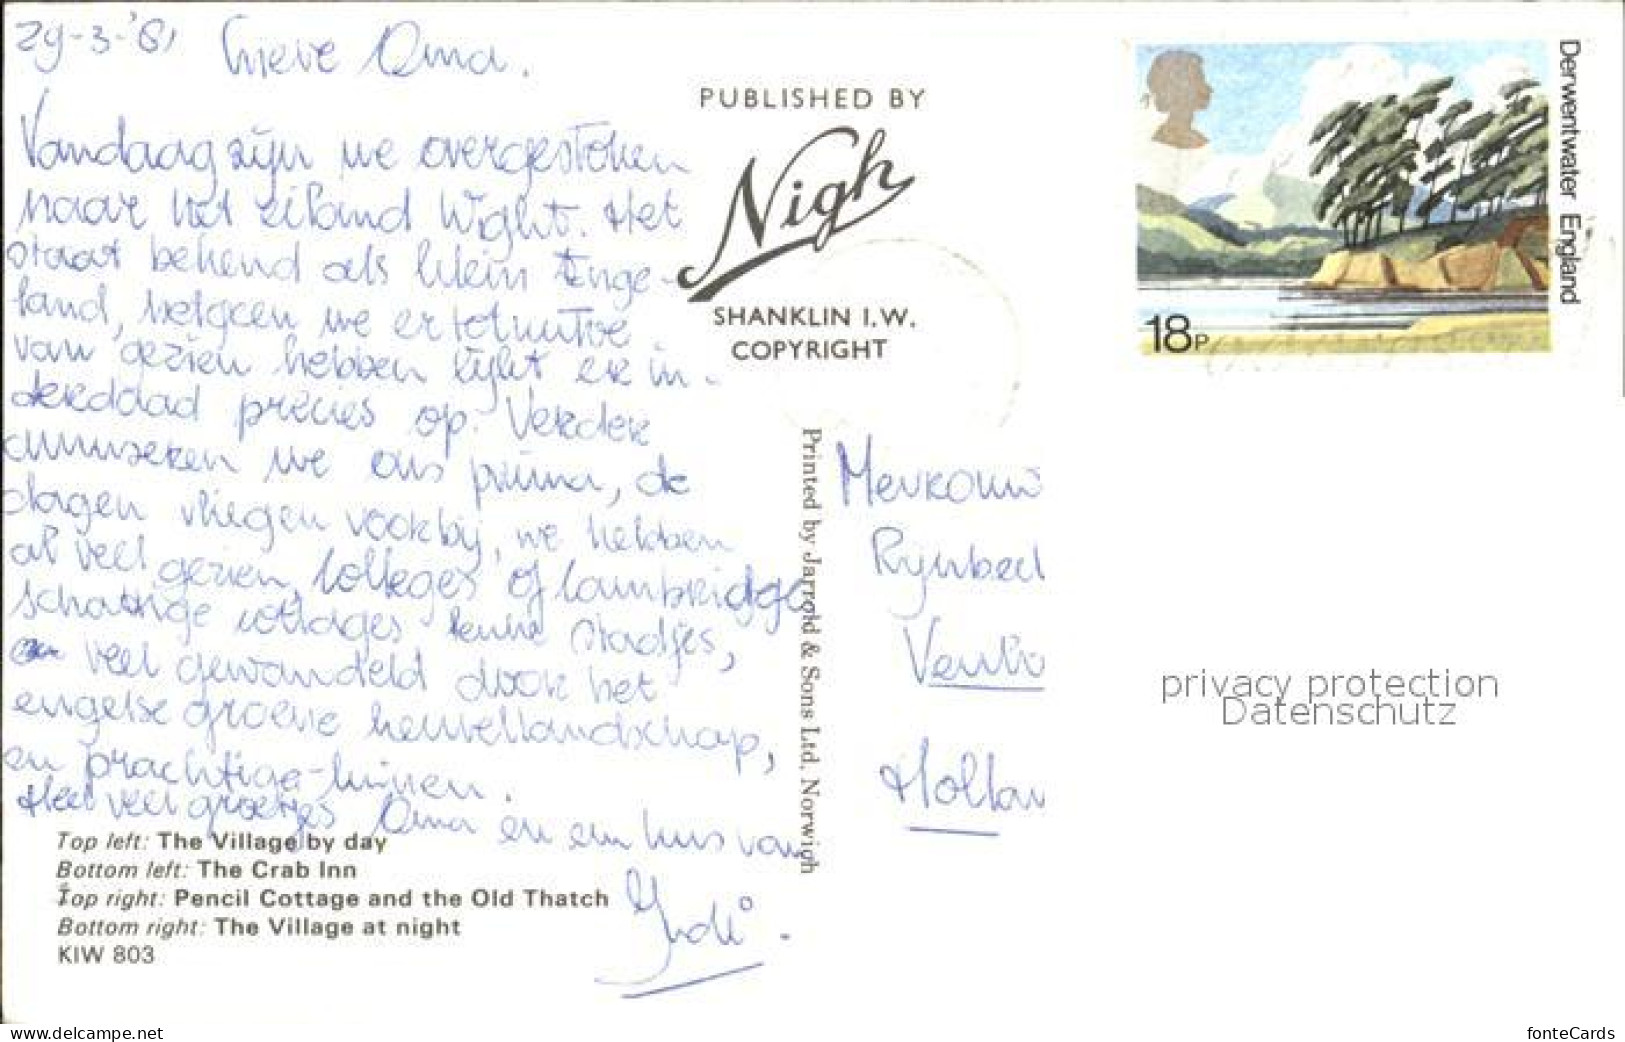 29-3-'81 Lieve Oma.
Vandaag zijn we overgestoken
naar het eiland Wight. Het
staat bekend als klein Enge-
land, hetgeen we er tot nu toe
van gezien hebben lijkt er in-
derdaad precies op. Verder
amuseren we ons prima, de
dagen vliegen voorbij, we hebben
al veel gezien, Colleges of Cambridge
schattige cottages leuke stadjes,
en veel gewandeld door het
engelse groene heuvellandschap,
en prachtige tuinen.
Heel veel groetjes Oma en een kus van
PUBLISHED BY
Nigh
SHANKLIN I.W.
COPYRIGHT
Printed by Jarrold & Sons Ltd, Norwich
Derwentwater England
18P
Mevrouw
Rijnbeek
Venlo
Hollan
privacy protection
Datenschutz
Top left: The Village by day
Bottom left: The Crab Inn
Top right: Pencil Cottage and the Old Thatch
Bottom right: The Village at night
KIW 803
www.delcampe.net
fonteCards